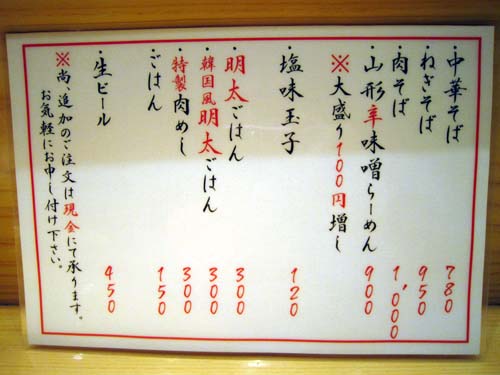 ・中華そば 780
・ねぎそば 950
・肉そば 1,000
・山形辛味噌らーめん 900
※大盛り100円増し
・塩味玉子 120
・明太ごはん 300
・韓国風明太ごはん 300
・特製肉めし 300
・ごはん 150
・生ビール 450
※尚、追加のご注文は現金にて承ります。
お気軽にお申し付け下さい。